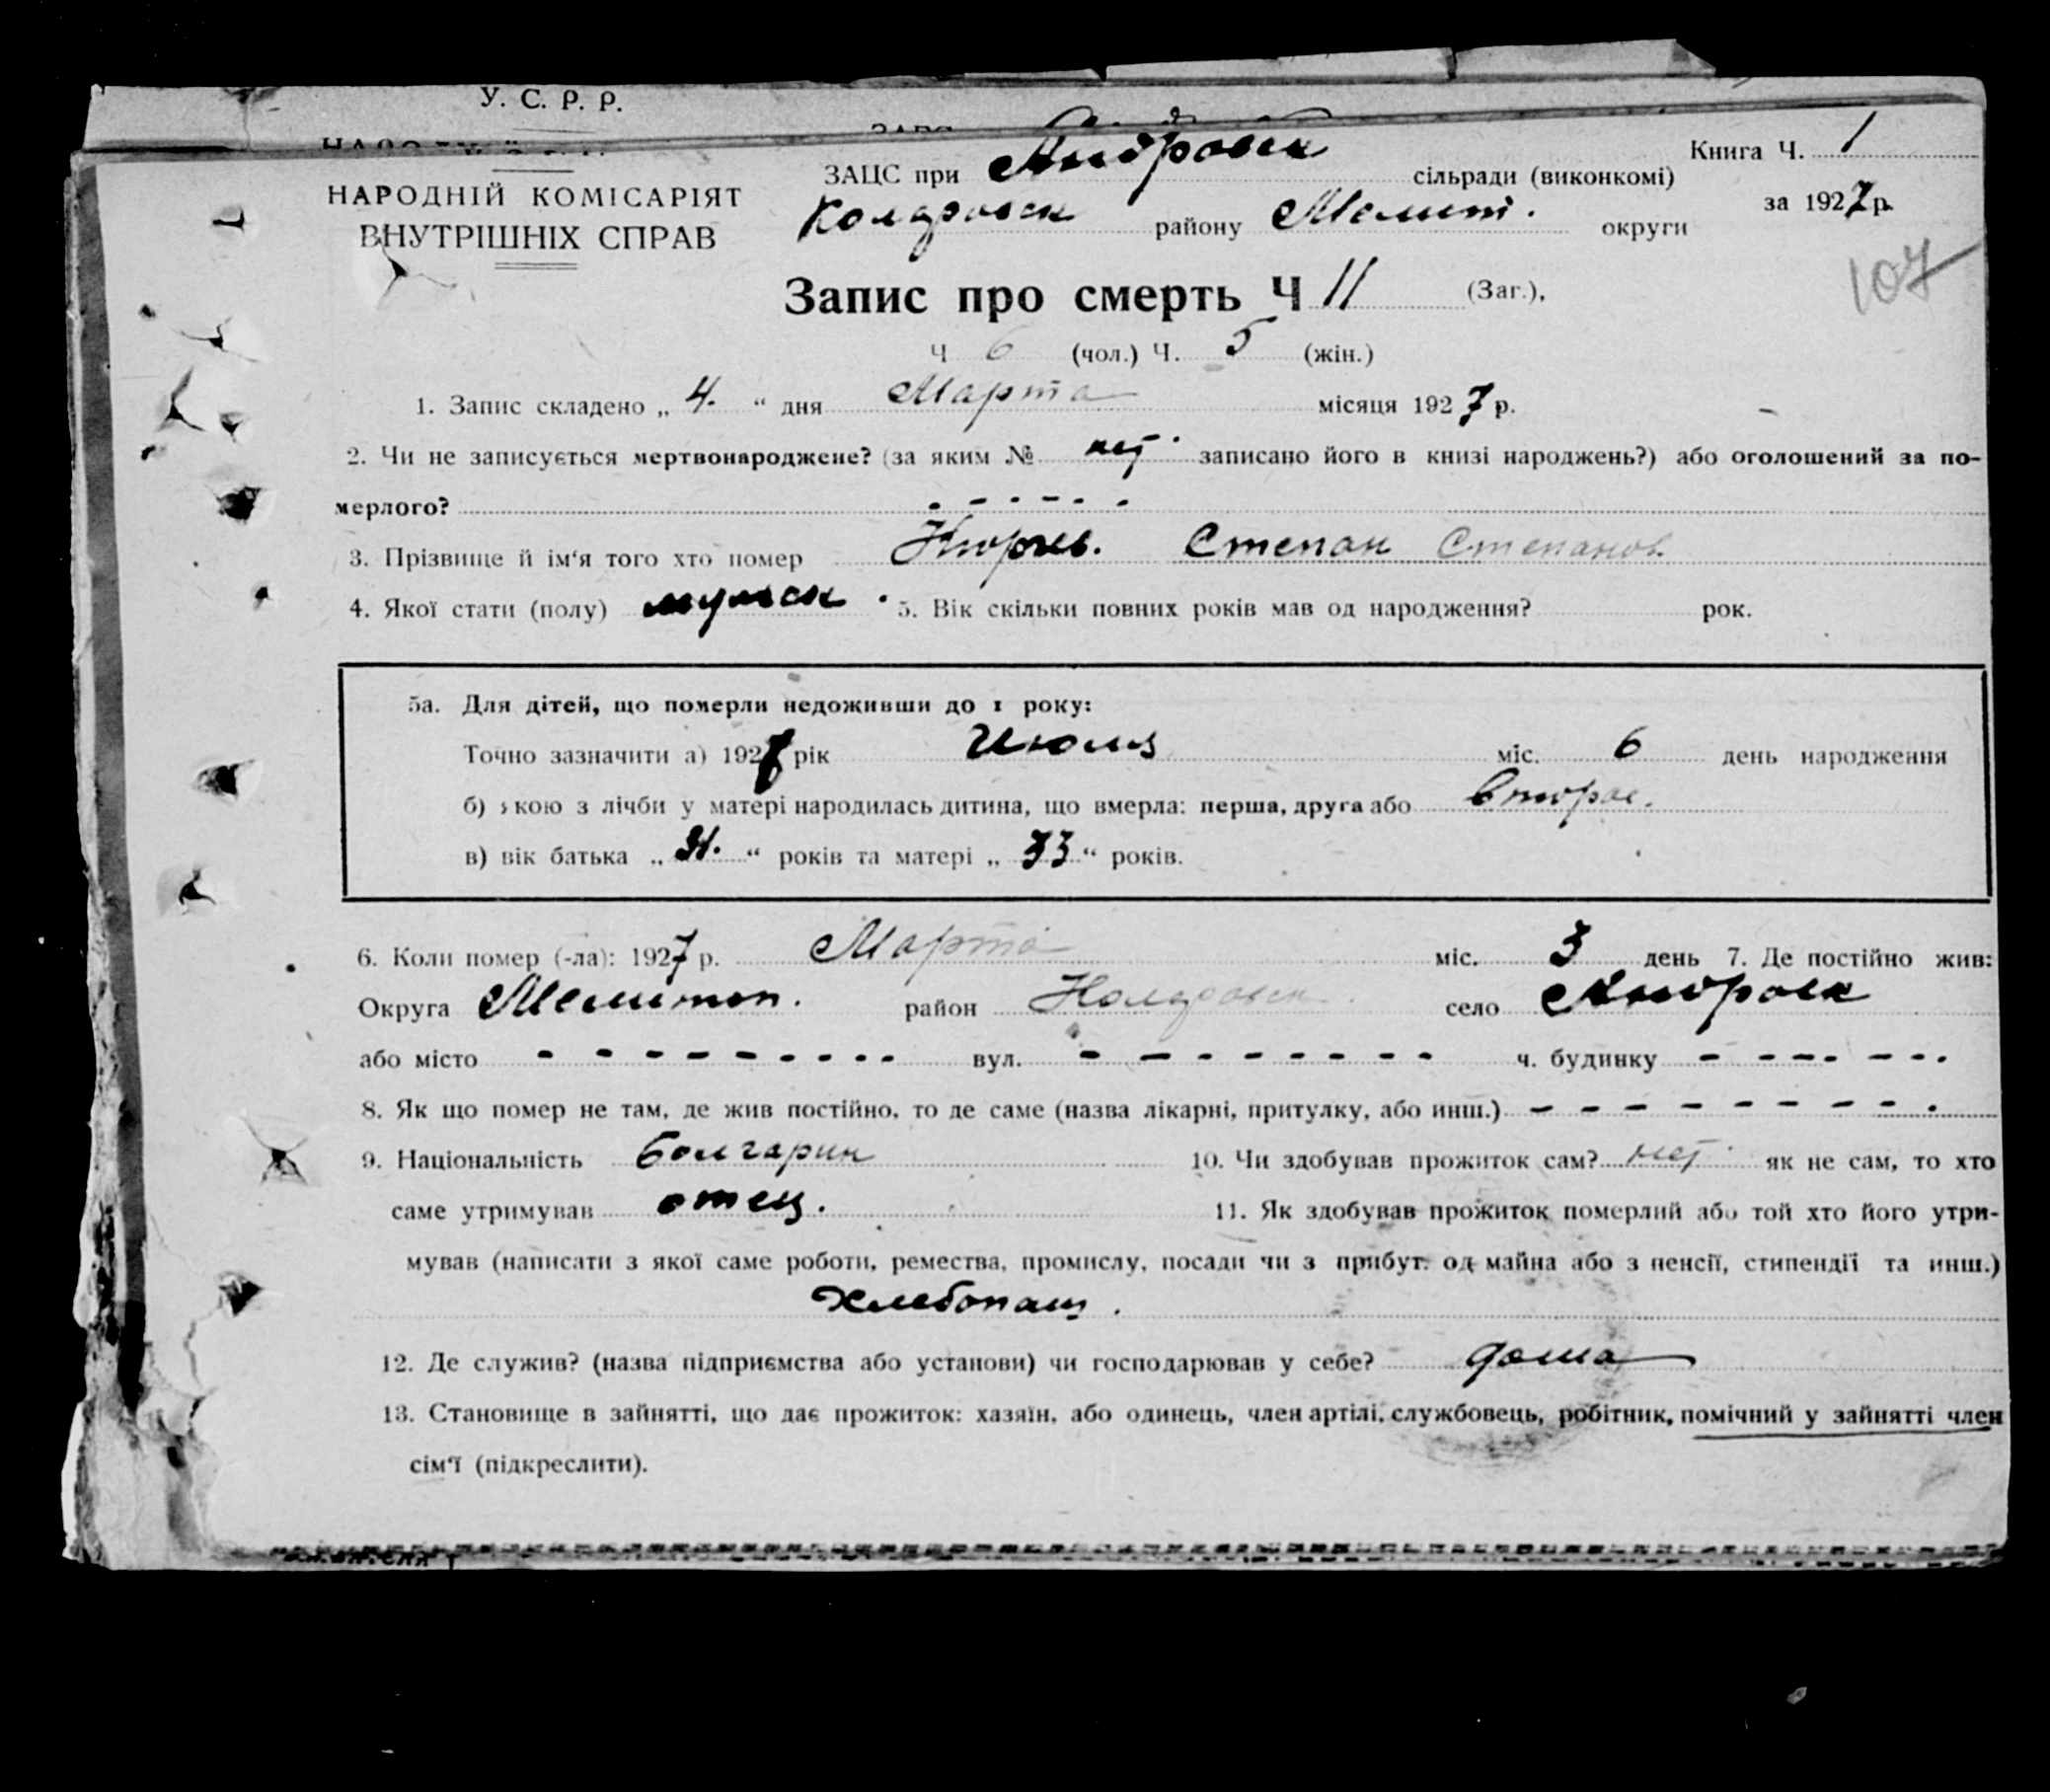 У. С. Р. Р.
НАРОДНІЙ КОМІСАРІЯТ
ВНУТРІШНІХ СПРАВ
ЗАЦС при Андровск сільради (виконкомі)
Коларовск району Мелит. округи
Книга Ч. 1
за 1927 р.
107
Запис про смерть Ч 11 (Заг.),
Ч 6 (чол.) Ч. 5 (жін.)
1. Запис складено „ 4. “ дня Марта місяця 1927 р.
2. Чи не записується мертвонароджене? (за яким № нет записано його в книзі народжень?) або оголошений за по-
мерлого? - - - - - -
3. Прізвище й ім'я того хто помер Степан Степанов.
4. Якої стати (полу) мужск. 5. Вік скільки повних років мав од народження? рок.
5а. Для дітей, що померли недоживши до 1 року:
Точно зазначити а) 192 рік Июля міс. 6 день народження
б) якою з лічби у матері народилась дитина, що вмерла: перша, друга або второе.
в) вік батька „ “ років та матері „ 33 “ років.
6. Коли помер (-ла): 1927 р. Марта міс. 3 день 7. Де постійно жив:
Округа Мелитоп. район Коларовск. село Андровск
або місто - - - - - - - - - вул. - - - - - - - - ч. будинку - - - - - - -
8. Як що помер не там, де жив постійно, то де саме (назва лікарні, притулку, або инш.) - - - - - - - - -
9. Національність болгарин 10. Чи здобував прожиток сам? нет як не сам, то хто
саме утримував отец. 11. Як здобував прожиток померлий або той хто його утри-
мував (написати з якої саме роботи, ремества, промислу, посади чи з прибут. од майна або з пенсії, стипендії та инш.)
Хлебопаш.
12. Де служив? (назва підприємства або установи) чи господарював у себе? дома
13. Становище в зайнятті, що дає прожиток: хазяїн, або одинець, член артілі, службовець, робітник, помічний у зайнятті член
сім'ї (підкреслити).